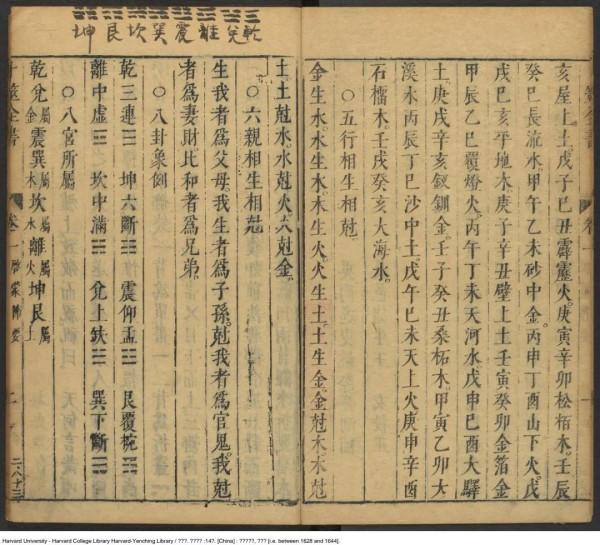 亥屋上土戊子巳丑霹靂火庚寅辛卯松栢木壬辰
癸巳長流水甲午乙未砂中金丙申丁酉山下火戊
戌巳亥平地木庚子辛丑壁上土壬寅癸卯金箔金
甲辰乙巳覆燈火丙午丁未天河水戊申巳酉大驛
土庚戌辛亥釵釧金壬子癸丑桑柘木甲寅乙卯大
溪水丙辰丁巳沙中土戊午巳未天上火庚申辛酉
石橊木壬戌癸亥大海水
○五行相生相尅
金生水水生木木生火火生土土生金金尅木木尅
土土尅水水尅火火尅金
○六親相生相尅
生我者爲父母我生者爲子孫尅我者爲官鬼我尅
者爲妻財比和者爲兄弟
○八卦象例
乾三連☰ 坤六斷☷ 震仰盂☳ 艮覆椀☶
離中虛☲ 坎中滿☵ 兌上缺☱ 巽下斷☴
○八宮所屬
乾兌屬金震巽屬木坎屬水離屬火坤艮屬土
卜筮全書 卷一 啓蒙節要 二
二八十三
乾 兌 離 震 巽 坎 艮 坤
Harvard University - Harvard College Library Harvard-Yenching Library / ???. ???? :14?. [China] : ?????, ??? [i.e. between 1628 and 1644].